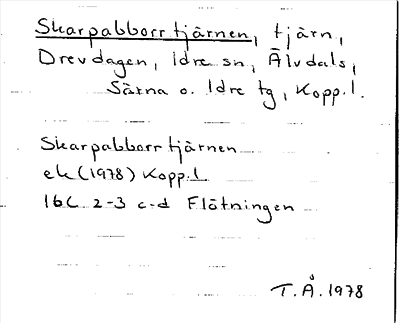 Skarpabborrtjärnen, tjärn,
Drevdagen, Idre sn, Älvdals,
Särna o. Idre tg, Kopp.l.
Skarpabborrtjärnen
ek (1978) Kopp.l.
16C 2-3 c-d Flötningen
T.Å. 1978